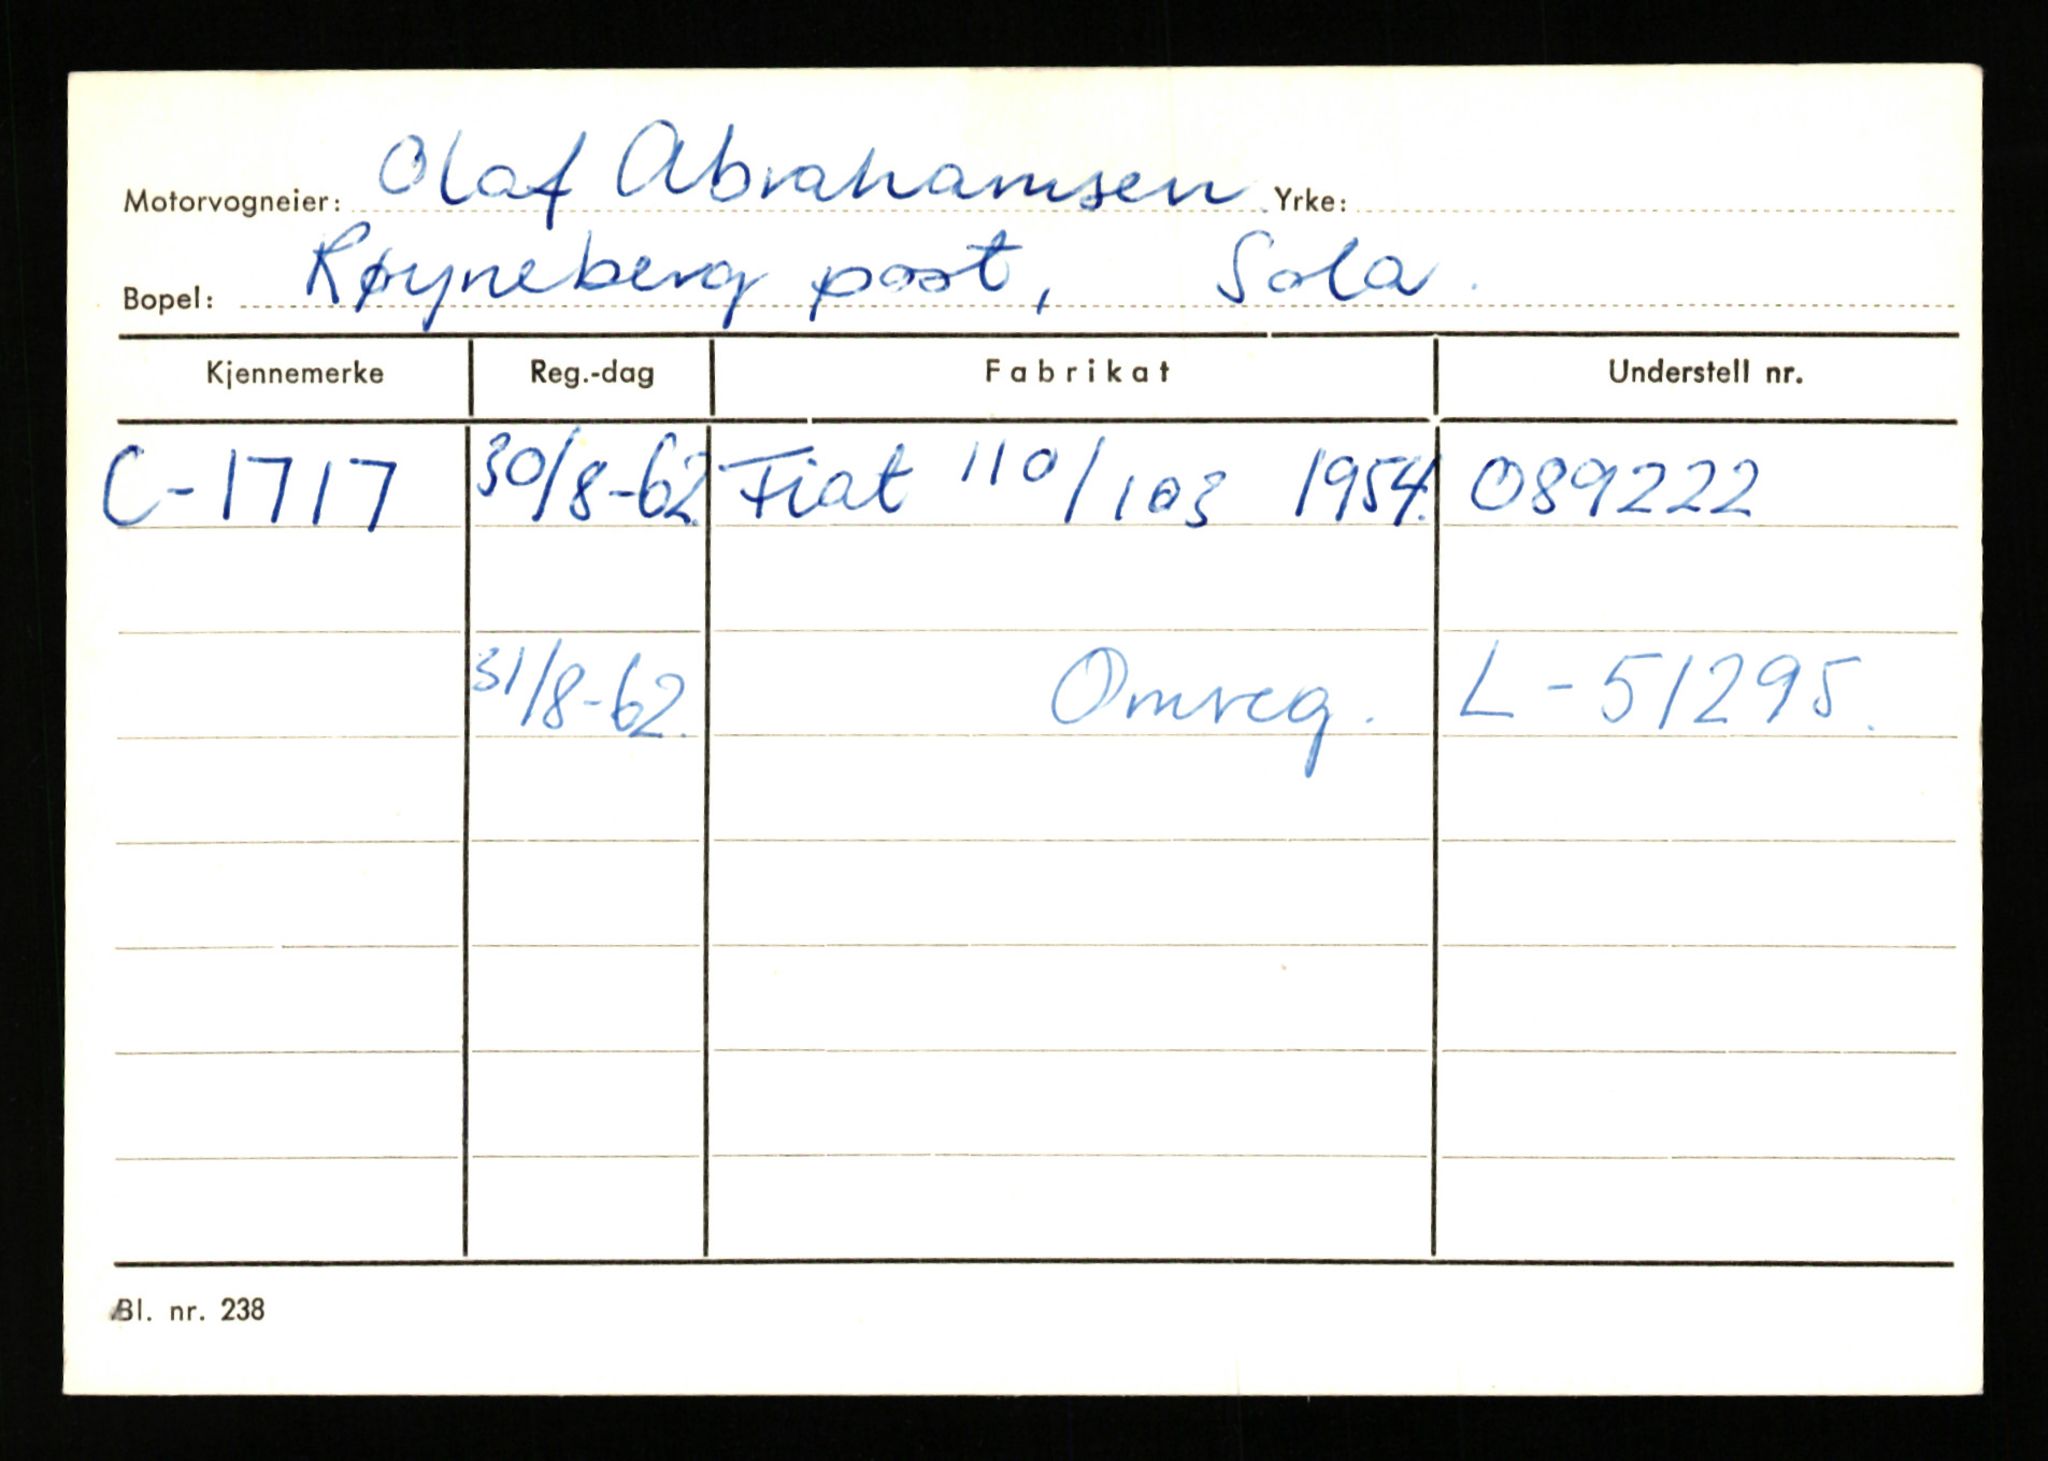 Motorvogneier: Olaf Abrahamsen Yrke:
Bopel: Røyneberg post, Sola.
Kjennemerke Reg.-dag Fabrikat Understell nr.
C-1717 30/8-62 Fiat 110/103 1954. 089222
31/8-62. Omreg. L-51295.
Bl. nr. 238